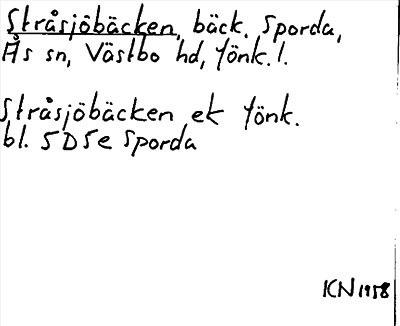 Stråsjöbäcken, bäck. Sporda,
Ås sn, Västbo hd, Jönk. l.
Stråsjöbäcken ek Jönk.
bl. 5D5e Sporda
KN 1958